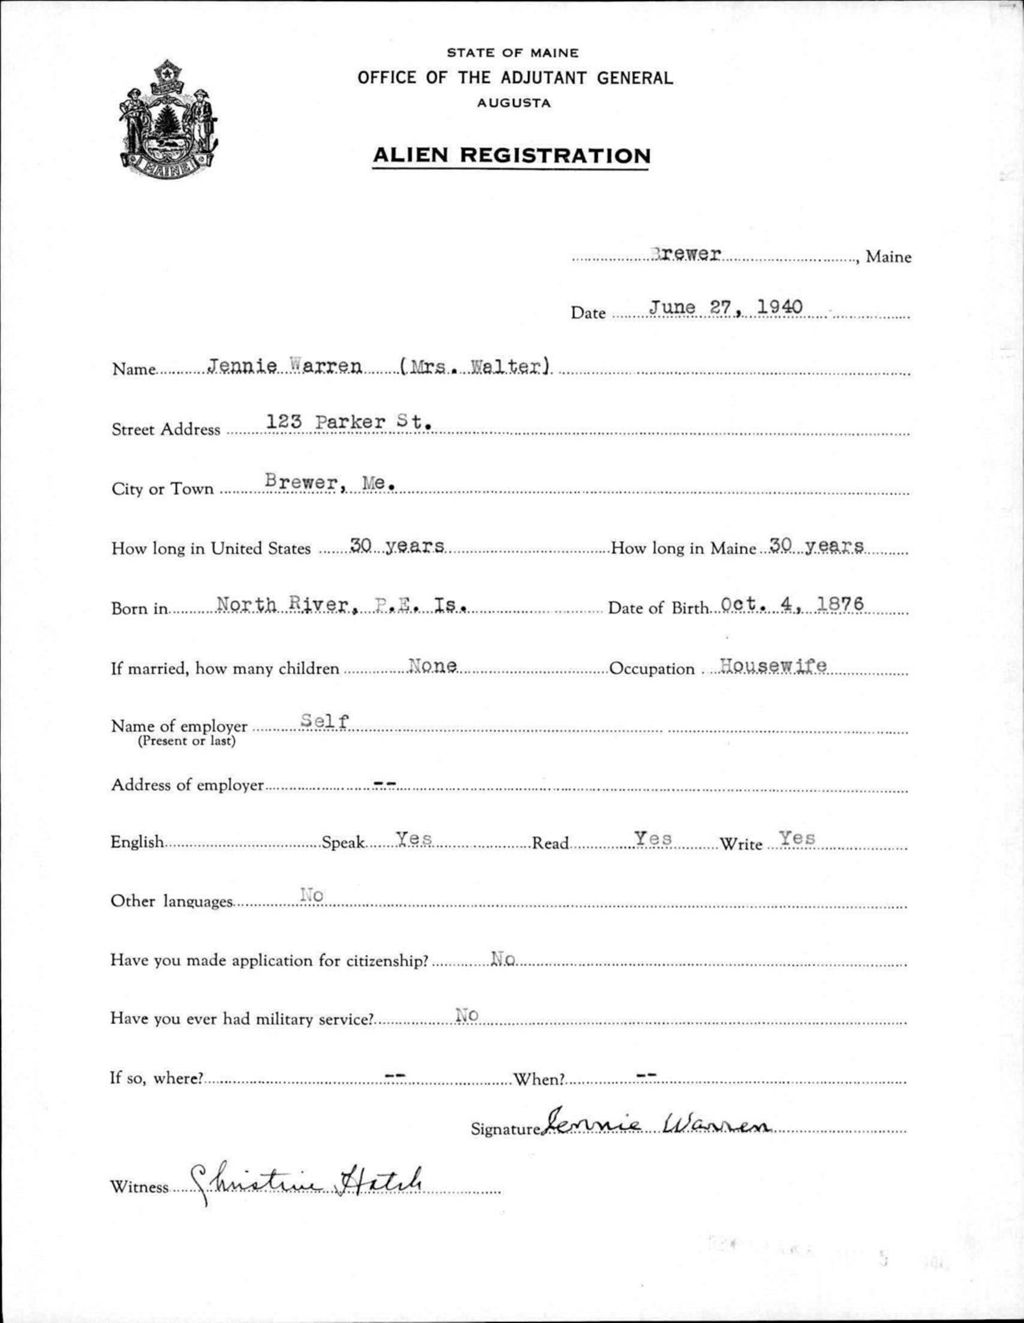 STATE OF MAINE
OFFICE OF THE ADJUTANT GENERAL
AUGUSTA
ALIEN REGISTRATION
MAINE
Brewer, Maine
Date June 27, 1940
Name Jennie Warren (Mrs. Walter)
Street Address 123 Parker St.
City or Town Brewer, Me.
How long in United States 30 years How long in Maine 30 years
Born in North River, P.E. Is. Date of Birth Oct. 4, 1876
If married, how many children None Occupation Housewife
Name of employer Self
(Present or last)
Address of employer --
English Speak Yes Read Yes Write Yes
Other languages No
Have you made application for citizenship? No
Have you ever had military service? No
If so, where? -- When? --
Signature Jennie Warren
Witness Christine Hatch